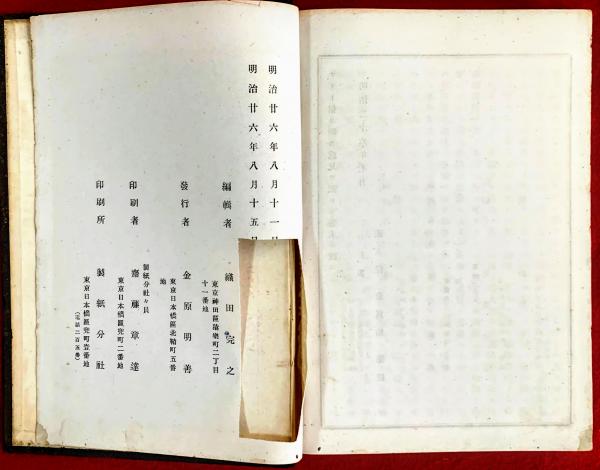 明治廿六年八月十一日
明治廿六年八月十五日
編輯者 織田完之
東京神田區 樂町二丁目
十一番地
發行者 金原明善
東京日本橋區北鞘町五番
地
印刷者 齋藤章達
製紙分社々員
東京日本橋區兜町二番地
印刷所 製紙分社
東京日本橋區兜町壹番地
(電話二百五番)